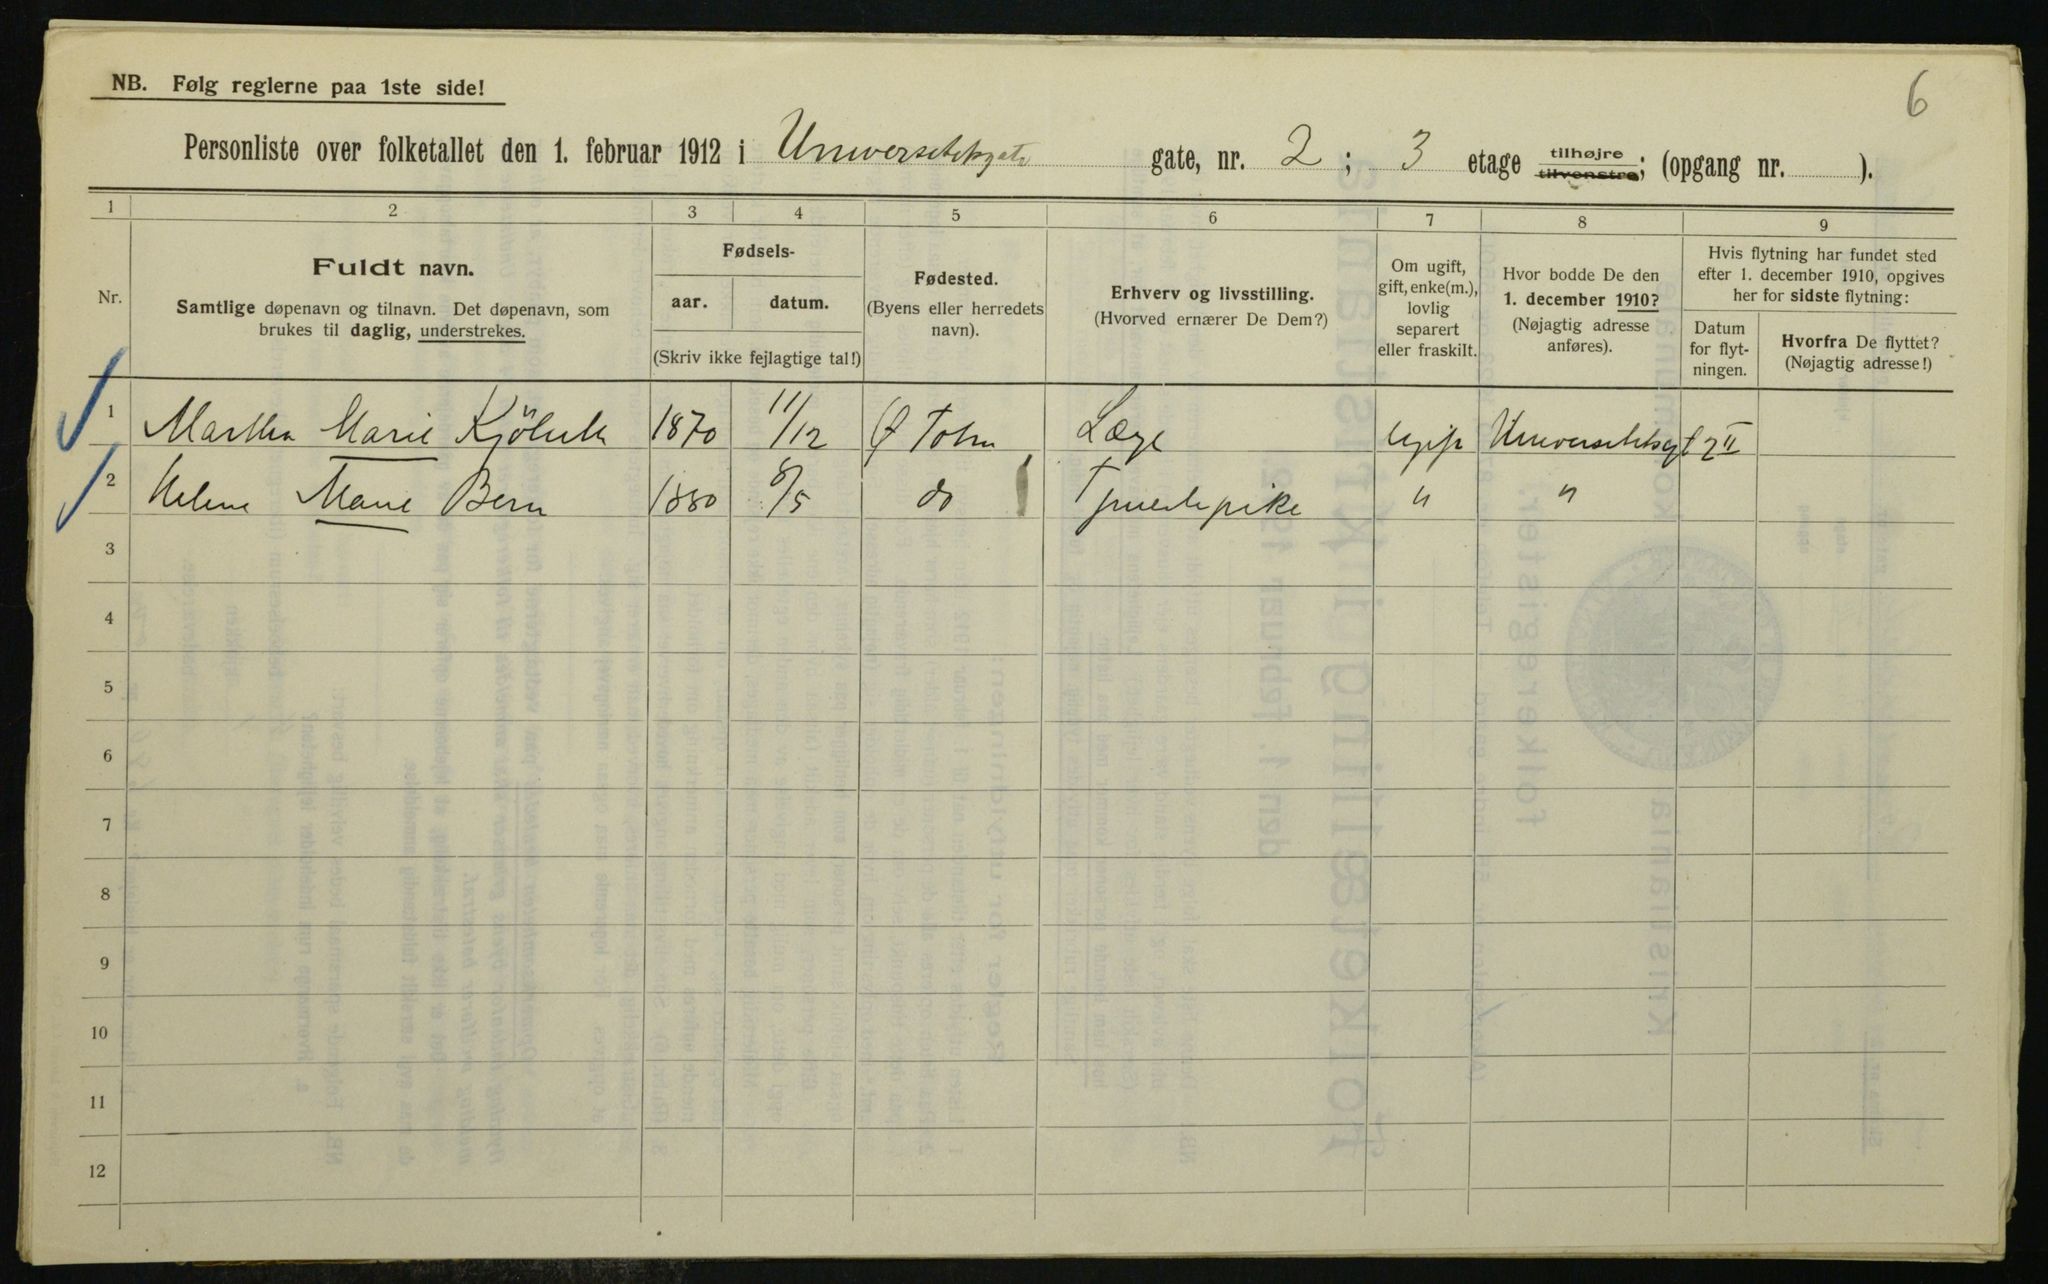 6
NB. Følg reglerne paa 1ste side!
Personliste over folketallet den 1. februar 1912 i Universitetsgata gate, nr. 2 ; 3 etage tilhøjre tilvenstre; (opgang nr. ).
1 2 3 4 5 6 7 8 9
Nr.
Fuldt navn.
Samtlige døpenavn og tilnavn. Det døpenavn, som
brukes til daglig, understrekes.
Fødsels-
aar. datum.
(Skriv ikke fejlagtige tal!)
Fødested.
(Byens eller herredets
navn).
Erhverv og livsstilling.
(Hvorved ernærer De Dem?)
Om ugift,
gift, enke(m.),
lovlig
separert
eller fraskilt.
Hvor bodde De den
1. december 1910?
(Nøjagtig adresse
anføres).
Hvis flytning har fundet sted
efter 1. december 1910, opgives
her for sidste flytning:
Datum
for flyt-
ningen.
Hvorfra De flyttet?
(Nøjagtig adresse!)
1 Martha Marie 1870 11/12 Ø Toten Læge Ugift Universitetsgt 2 II
2 Helene Marie Bern 1880 6/5 do Tjenestepike " "
3
4
5
6
7
8
9
10
11
12